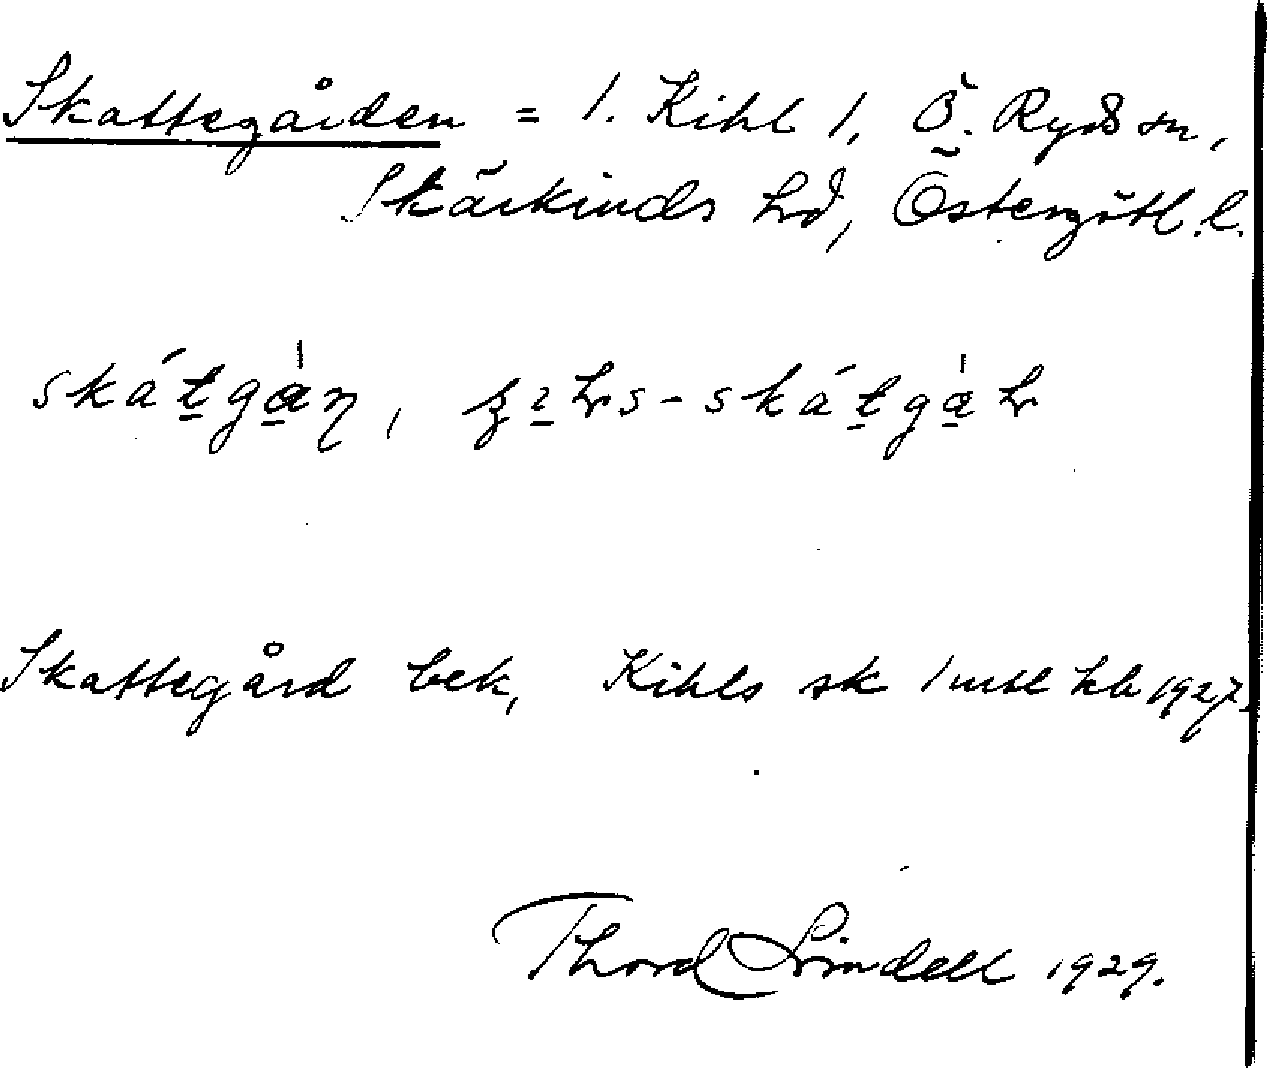 Skattegården = 1. Kihl 1, Ö. Ryds sn,
Skärkinds hd, Östergötl. l.
skátgàn,
Skattegård bek, Kihls sk 1 mtl hb 1927.
Thord Lindell 1929.